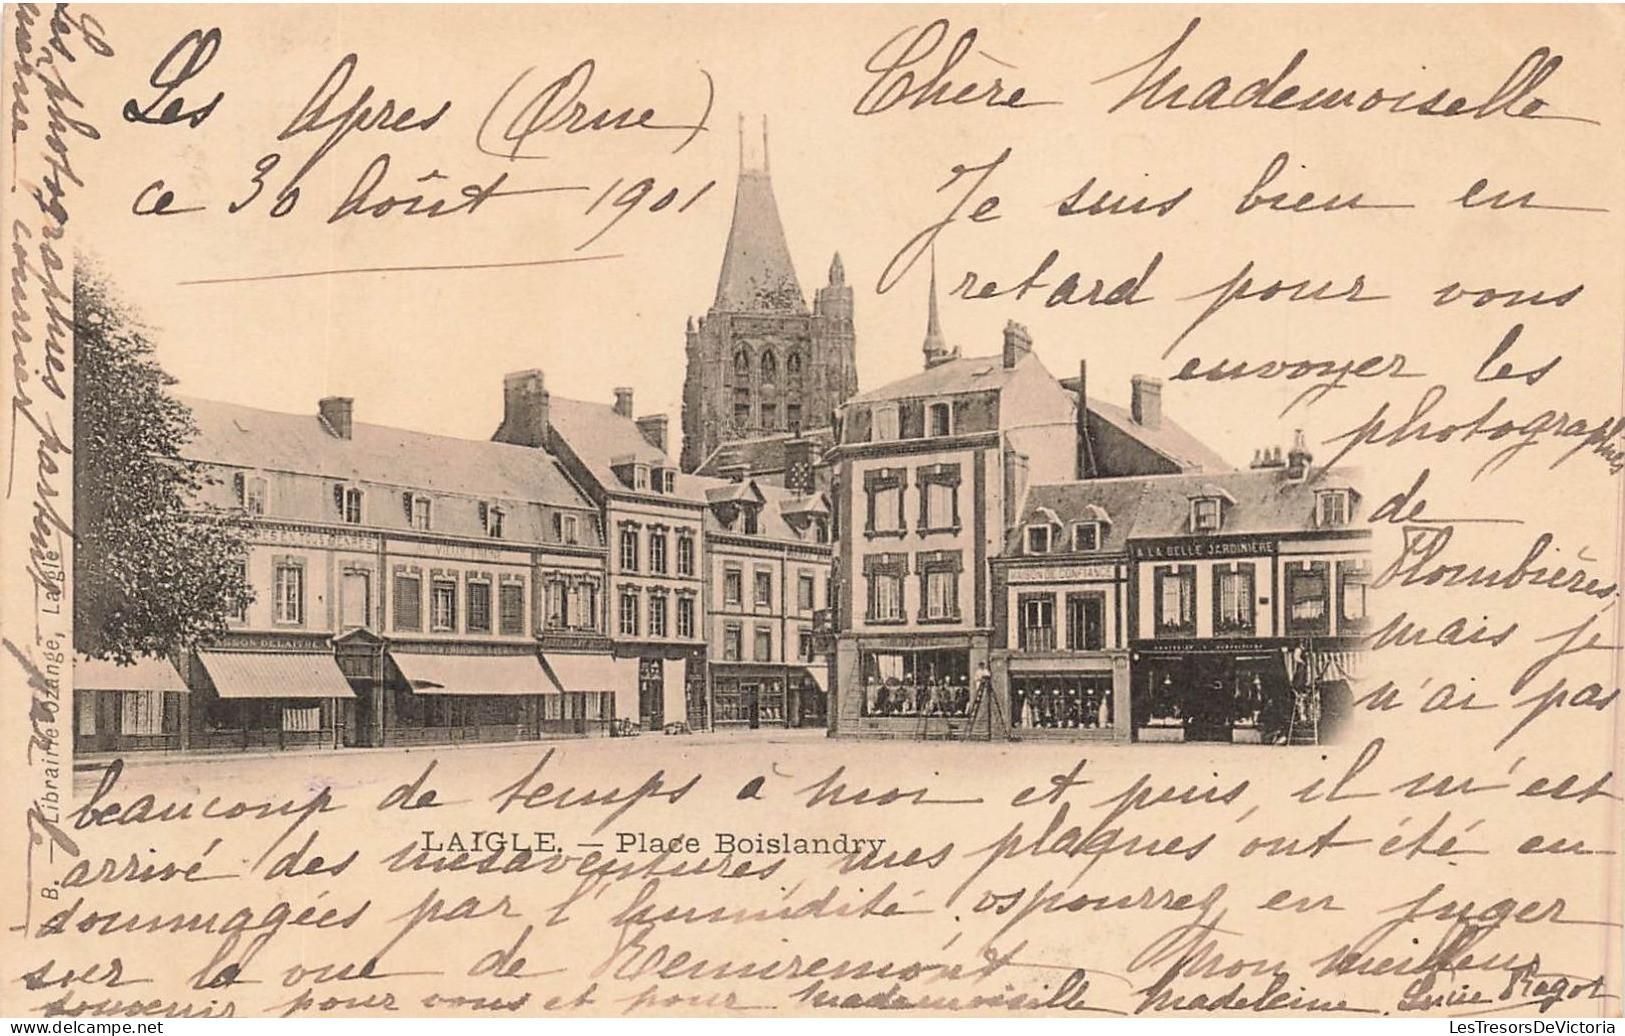 Les Apres (Orne)
ce 30 Août 1901
Chère Mademoiselle
Je suis bien en
retard pour vous
envoyer les
photographies
de
Plombières,
mais je
n'ai pas
beaucoup de temps à moi et puis, il m'est
arrivé des mésaventures, mes plaques ont été en
dommagées par l'humidité. vs pourrez en juger
sur la vue de Remiremont Mon meilleur
souvenir pour vous et pour mademoiselle Madeleine. Lucie
Les photographies partent par le
même courrier
LAIGLE. — Place Boislandry
B. — Librairie Dzange, Laigle
MAISON DE CONFIANCE
A LA BELLE JARDINIÈRE
LesTresorsDeVictoria.com